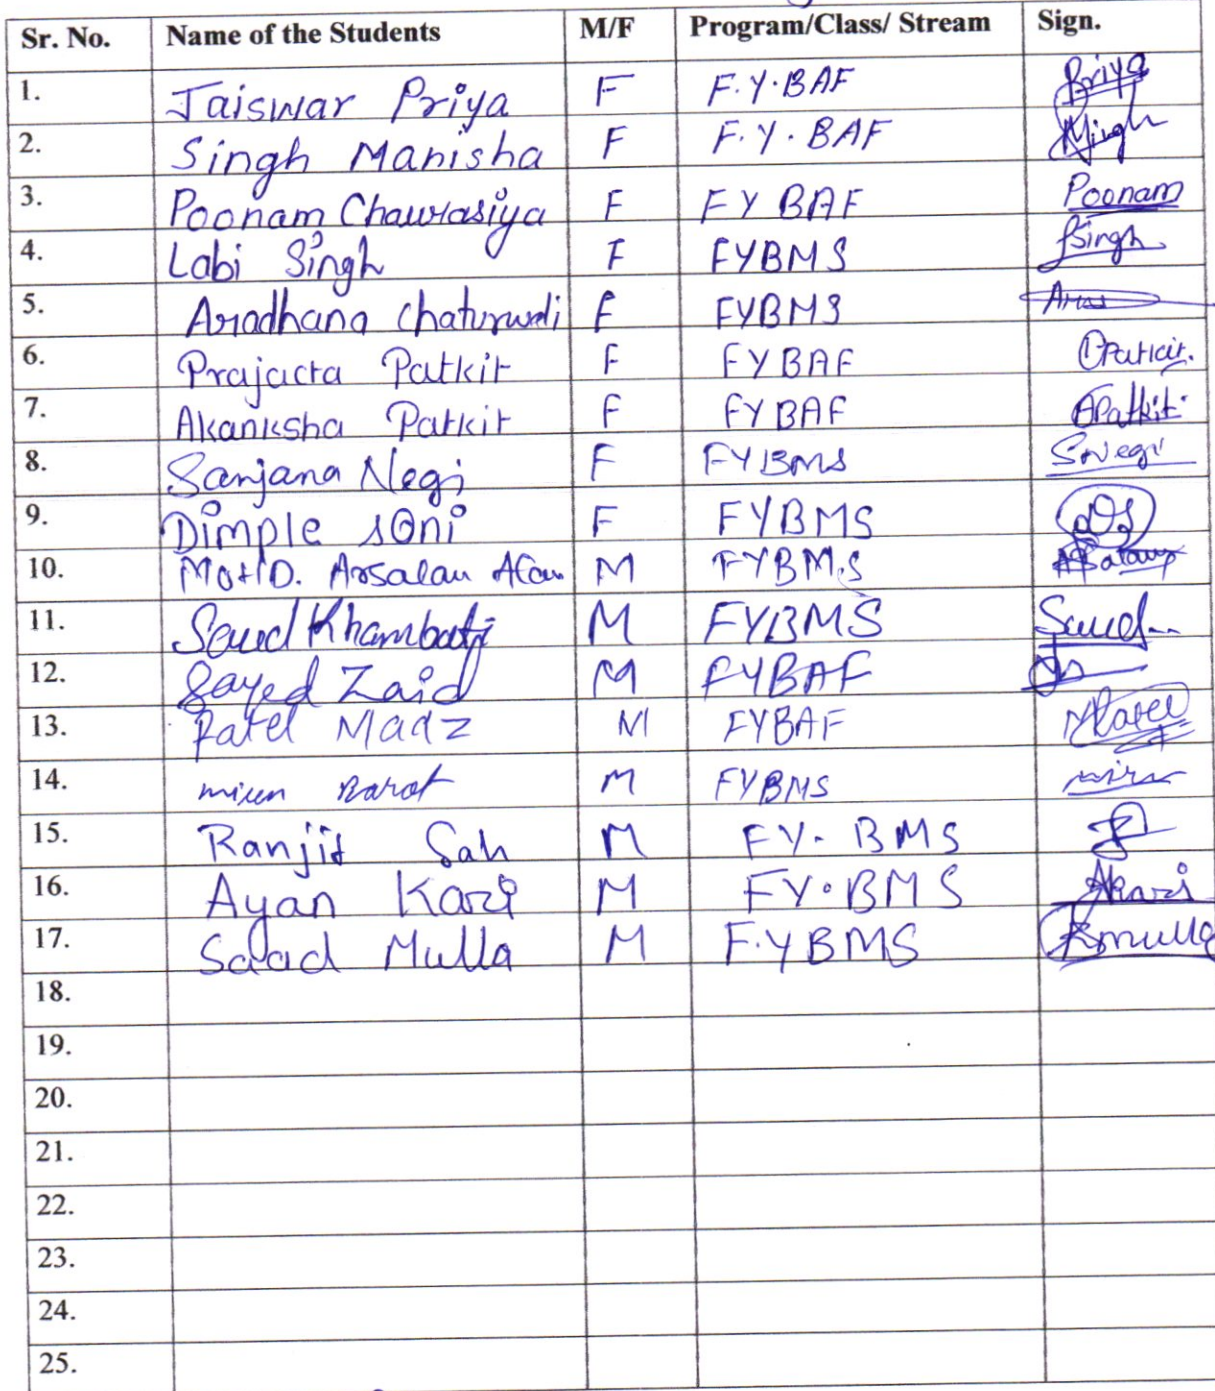 Sr. No. Name of the Students M/F Program/Class/ Stream Sign.
1. Jaiswar Priya F F.Y.BAF Priya
2. Singh Manisha F F.Y.BAF
3. Poonam Chaurasiya F FYBAF Poonam
4. Labi Singh F FYBMS Singh
5. Aradhana Chaturvedi F FYBMS
6. Prajacta Patkit F FYBAF Patkit.
7. Akanksha Patkit F FYBAF APatkit.
8. Sanjana Negi F FYBMS SNegi
9. Dimple Soni F FYBMS
10. MOHD. Arsalan M FYBM.S
11. Saud Khambati M FYBMS Saud
12. Sayed Zaid M FYBAF
13. Patel Maaz M FYBAF MPatel
14. Barot M FYBMS
15. Ranjit Sah M FY. BMS
16. Ayan Kazi M FY.BMS AKazi
17. Saad Mulla M F.YBMS
18.
19.
20.
21.
22.
23.
24.
25.